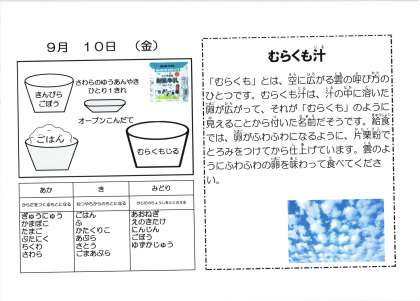 9月 10日 (金)
さわらのゆうあんやき
ひとり1きれ
きんぴら
ごぼう
オーブンこんだて
ごはん
むらくもじる
あか
き
みどり
ぎゅうにゅう
かまぼこ
たまご
ぶたにく
ちくわ
さわら
ごはん
ふ
かたくりこ
あぶら
さとう
ごまあぶら
あおねぎ
えのきたけ
にんじん
ごぼう
ゆずかじゅう
むらくも汁
「むらくも」とは、空に広がる雲の呼び方の
ひとつです。むらくも汁は、汁の中に溶いた
卵が広がって、それが「むらくも」のように
見えることから付いた名前だそうです。給食
では、卵がふわふわになるように、片栗粉で
とろみをつけてから仕上げています。雲のよ
うにふわふわの卵を味わって食べてくださ
い。